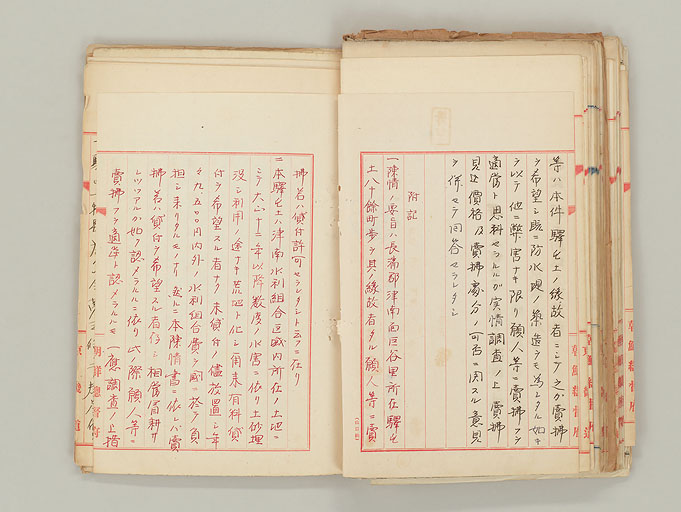 等ハ本件驛屯土ノ縁故者ニシテ之カ賣拂
ヲ希望シ既ニ防水堤ノ築造ヲモ為シタル如キ
ヲ以テ他ニ弊害ナキ限リ願人等ニ賣拂フヲ
適當ト思料セラルルカ實情調査ノ上賣拂
見込價格及賣拂處分ノ可否ニ関スル意見
ヲ併セテ回答セラレタシ
附記
一陳情ノ要旨ハ長湍郡津南面巨谷里所在驛屯
土八十餘町歩ヲ其ノ縁故者タル願人等ニ賣
拂若ハ貸付許可セラレタシト云フニ在リ
二本驛屯土ハ津南水利組合區域内所在ノ土地ニ
シテ大正十二年以降数度ノ水害ニ依リ土砂埋
没シ利用ノ途ナキ荒地ト化シ爾来有料貸
付ヲ希望スル者ナク未貸付ノ儘放置シ年
々九、五〇〇円内外ノ水利組合費ヲ國ニ於テ負
担シ来リタルモノナリ然ルニ本陳情書ニ依レハ賣
拂若ハ貸付ヲ希望スル者存シ相當冒耕セ
レツツアルカ如ク認メラルルニ依リ此ノ際願人等ニ
賣拂フヲ適當ト認メラルルモ一應調査ノ上措
朝鮮總督府